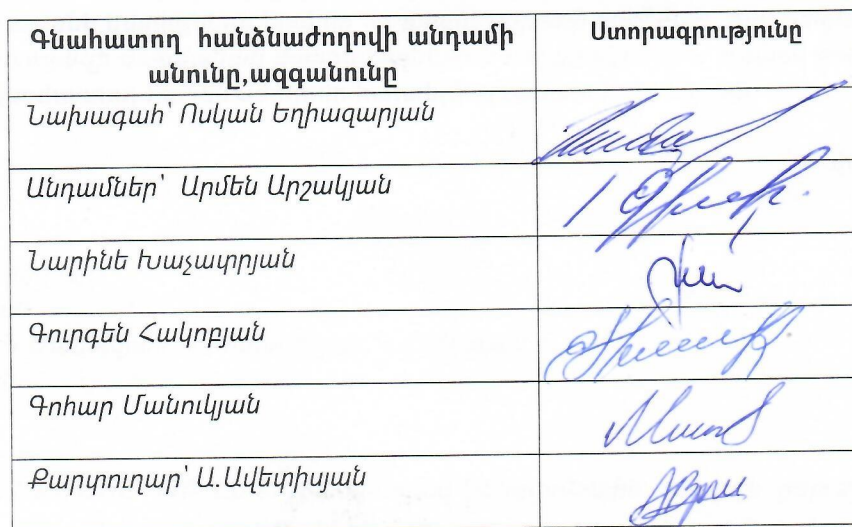 Գնահատող հանձնաժողովի անդամի
անունը,ազգանունը
Ստորագրությունը
Նախագահ՝ Ոսկան Եղիազարյան
Անդամներ՝ Արմեն Արշակյան
Նարինե Խաչատրյան
Գուրգեն Հակոբյան
Գոհար Մանուկյան
Քարտուղար՝ Ա.Ավետիսյան